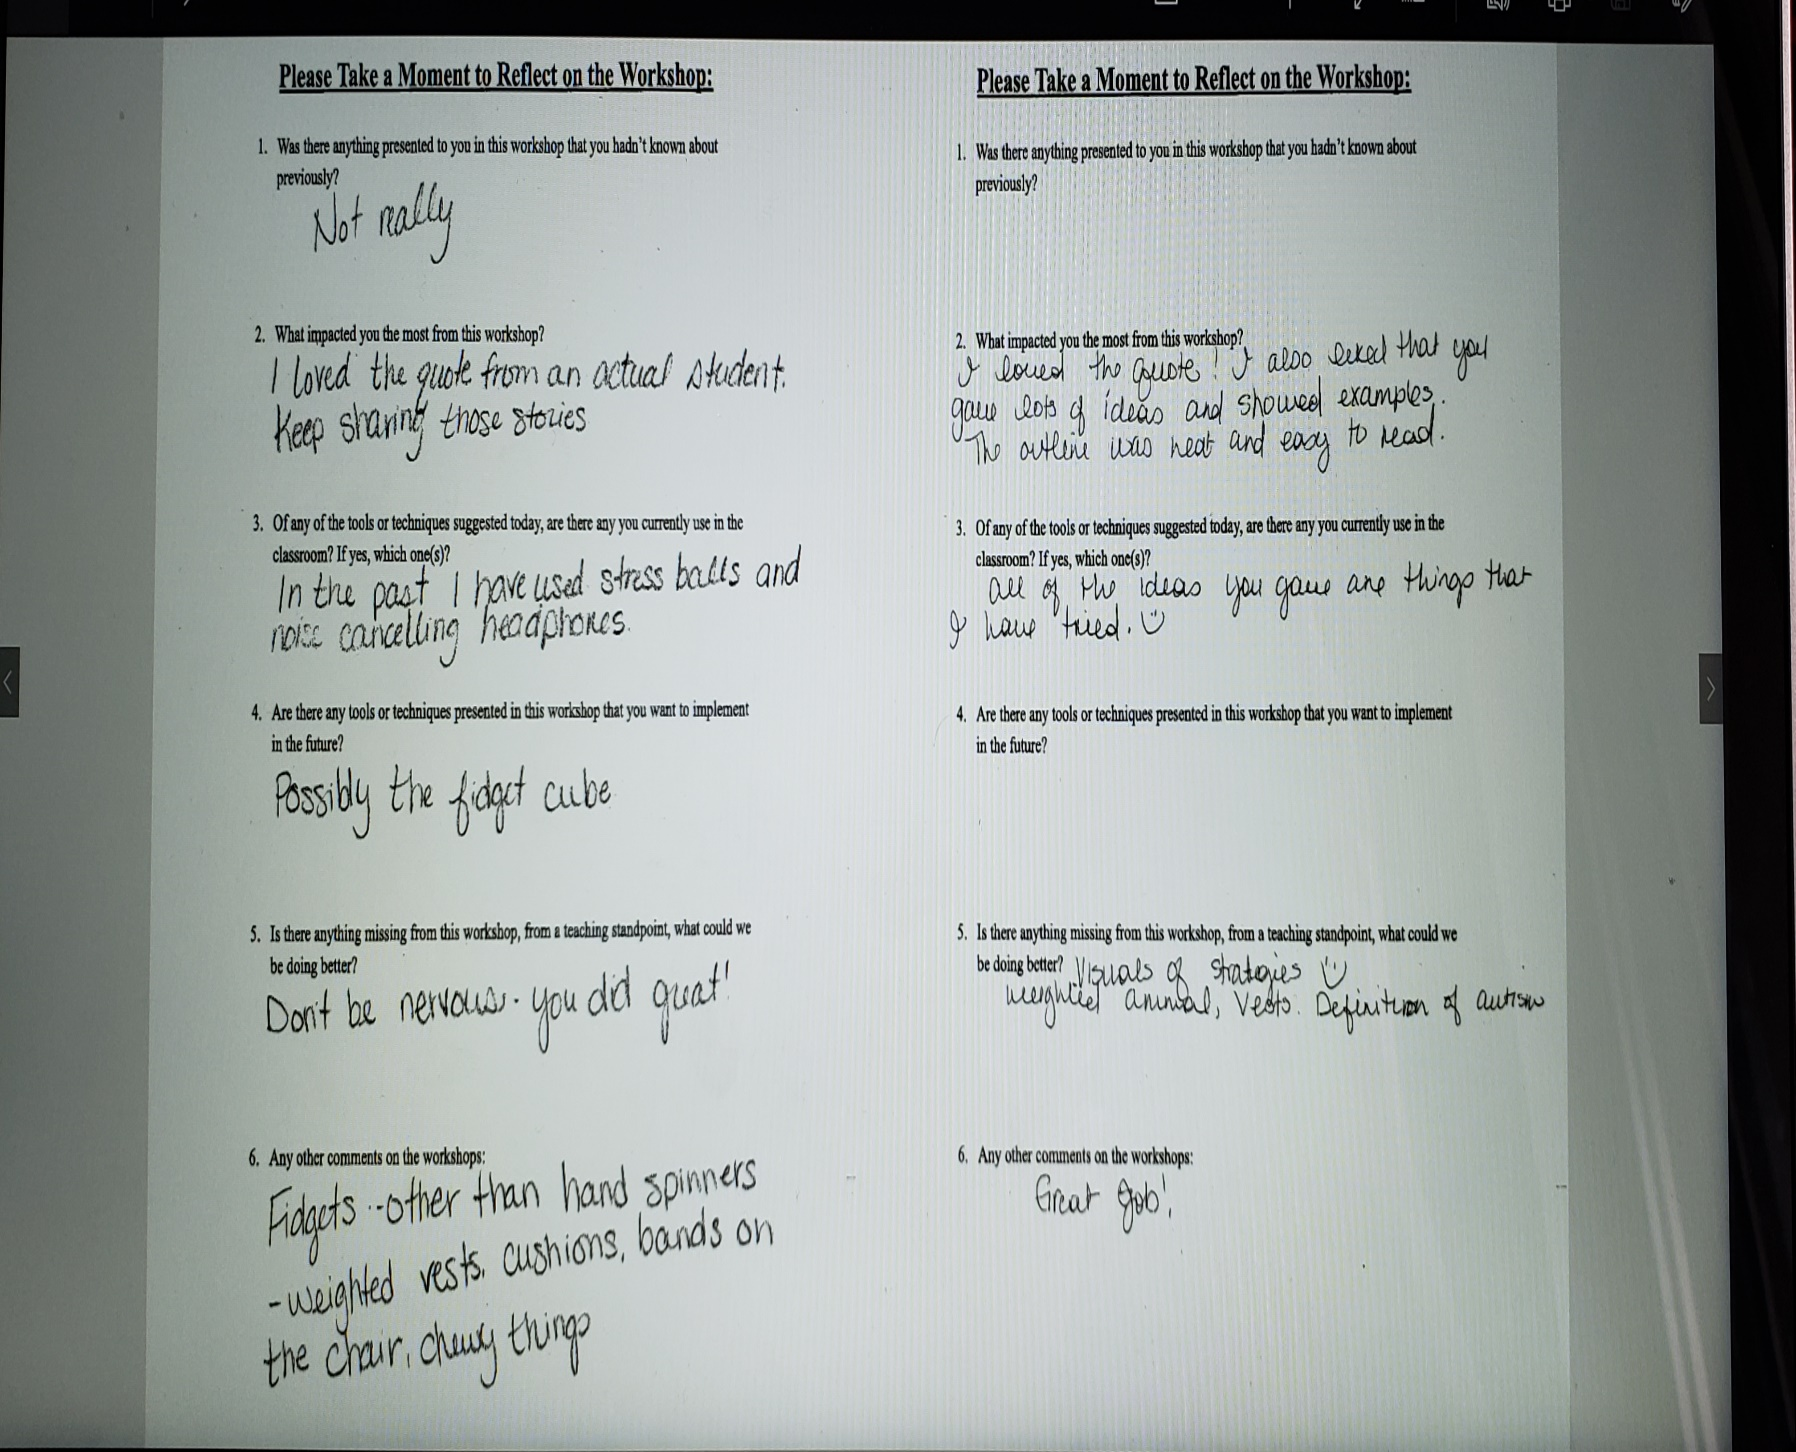 Please Take a Moment to Reflect on the Workshop:
1. Was there anything presented to you in this workshop that you hadn't known about
previously?
Not really
2. What impacted you the most from this workshop?
I loved the quote from an actual student.
Keep sharing those stories
3. Of any of the tools or techniques suggested today, are there any you currently use in the
classroom? If yes, which one(s)?
In the past I have used stress balls and
noise cancelling headphones.
4. Are there any tools or techniques presented in this workshop that you want to implement
in the future?
Possibly the fidget cube
5. Is there anything missing from this workshop, from a teaching standpoint, what could we
be doing better?
Don't be nervous. you did great!
6. Any other comments on the workshops:
Fidgets -other than hand spinners
-weighted vests, cushions, bands on
the chair, chewy things
Please Take a Moment to Reflect on the Workshop:
1. Was there anything presented to you in this workshop that you hadn't known about
previously?
2. What impacted you the most from this workshop?
I loved the quote! I also liked that you
gave lots of ideas and showed examples.
The outline was neat and easy to read.
3. Of any of the tools or techniques suggested today, are there any you currently use in the
classroom? If yes, which one(s)?
all of the ideas you gave are things that
I have tried.
4. Are there any tools or techniques presented in this workshop that you want to implement
in the future?
5. Is there anything missing from this workshop, from a teaching standpoint, what could we
be doing better? Visuals of strategies
weighted animal, vests. Definition of autism
6. Any other comments on the workshops:
Great job!